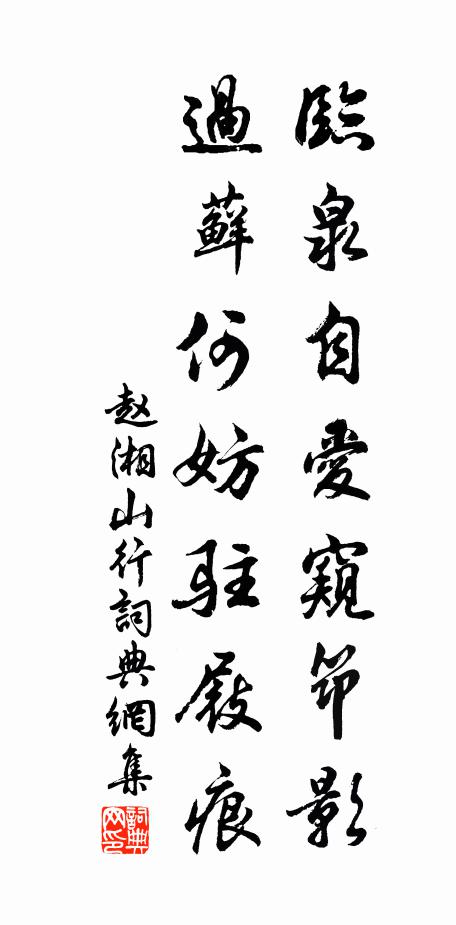 臨泉自愛窺筇影
過蘚何妨駐屐痕
赵湘山行詞典網集
詞典
网印